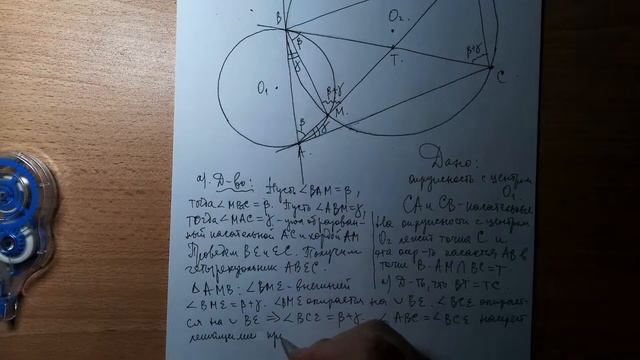 B
O₂
β
γ
T
β+γ
C
O₁
β+γ
M
β
γ
A
а). Д-во: Пусть ∠BAM = β,
тогда ∠MBC = β. Пусть ∠ABM = γ,
тогда ∠MAC = γ - угол образован-
ный касательной AC и хордой AM
Проведём BE и EC. Получим
четырёхугольник ABEC.
△AMB: ∠BME - внешний
∠BME = β+γ. ∠BME опирается на ∪ BE. ∠BCE опирает-
ся на ∪ BE ⇒ ∠BCE = β+γ. ∠ABC = ∠BCE накрест
лежащими пр
Дано:
окружность с центром
O₁.
CA и CB - касательные
На окружности с центром
O₂ лежит точка C и
эта окр-ть касается AB в
точке B. AM ∩ BC = T
а) Д-ть, что BT = TC